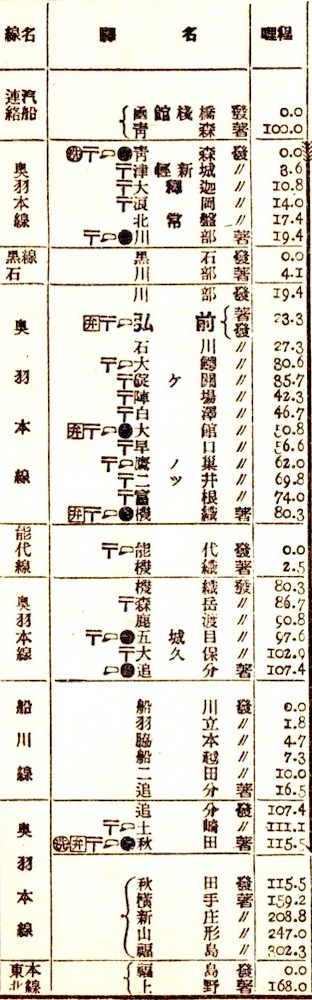 線名 驛名 哩程
汽船連絡 函館棧橋 發 0.0
青森 著 100.0
奥羽本線 青森 發 0.0
津輕新城 〃 3.6
大釋迦 〃 10.8
浪岡 〃 14.0
北常盤 〃 17.4
川部 著 19.4
黒石線 黒石 發 0.0
川部 著 4.1
奥羽本線 川部 發 19.4
弘前 著發 23.3
石川 〃 27.3
大鰐 〃 80.6
碇ケ關 〃 85.7
陣場 〃 42.3
白澤 〃 46.7
大館 〃 50.8
早口 〃 56.6
鷹ノ巣 〃 62.0
二ツ井 〃 69.8
富根 〃 74.0
機織 著 80.3
能代線 能代 發 0.0
機織 著 2.5
奥羽本線 機織 發 80.3
森岳 〃 86.7
鹿渡 〃 90.8
五城目 〃 97.6
大久保 〃 102.9
追分 著 107.4
船川線 船川 發 0.0
羽立 〃 1.8
脇本 〃 4.7
船越 〃 7.3
二田 〃 10.0
追分 著 16.5
奥羽本線 追分 發 107.4
土崎 〃 111.1
秋田 著 115.5
秋田 發 115.5
橫手 著 159.2
新庄 〃 208.8
山形 〃 247.0
福島 〃 302.3
東北本線 福島 發 0.0
上野 著 168.0